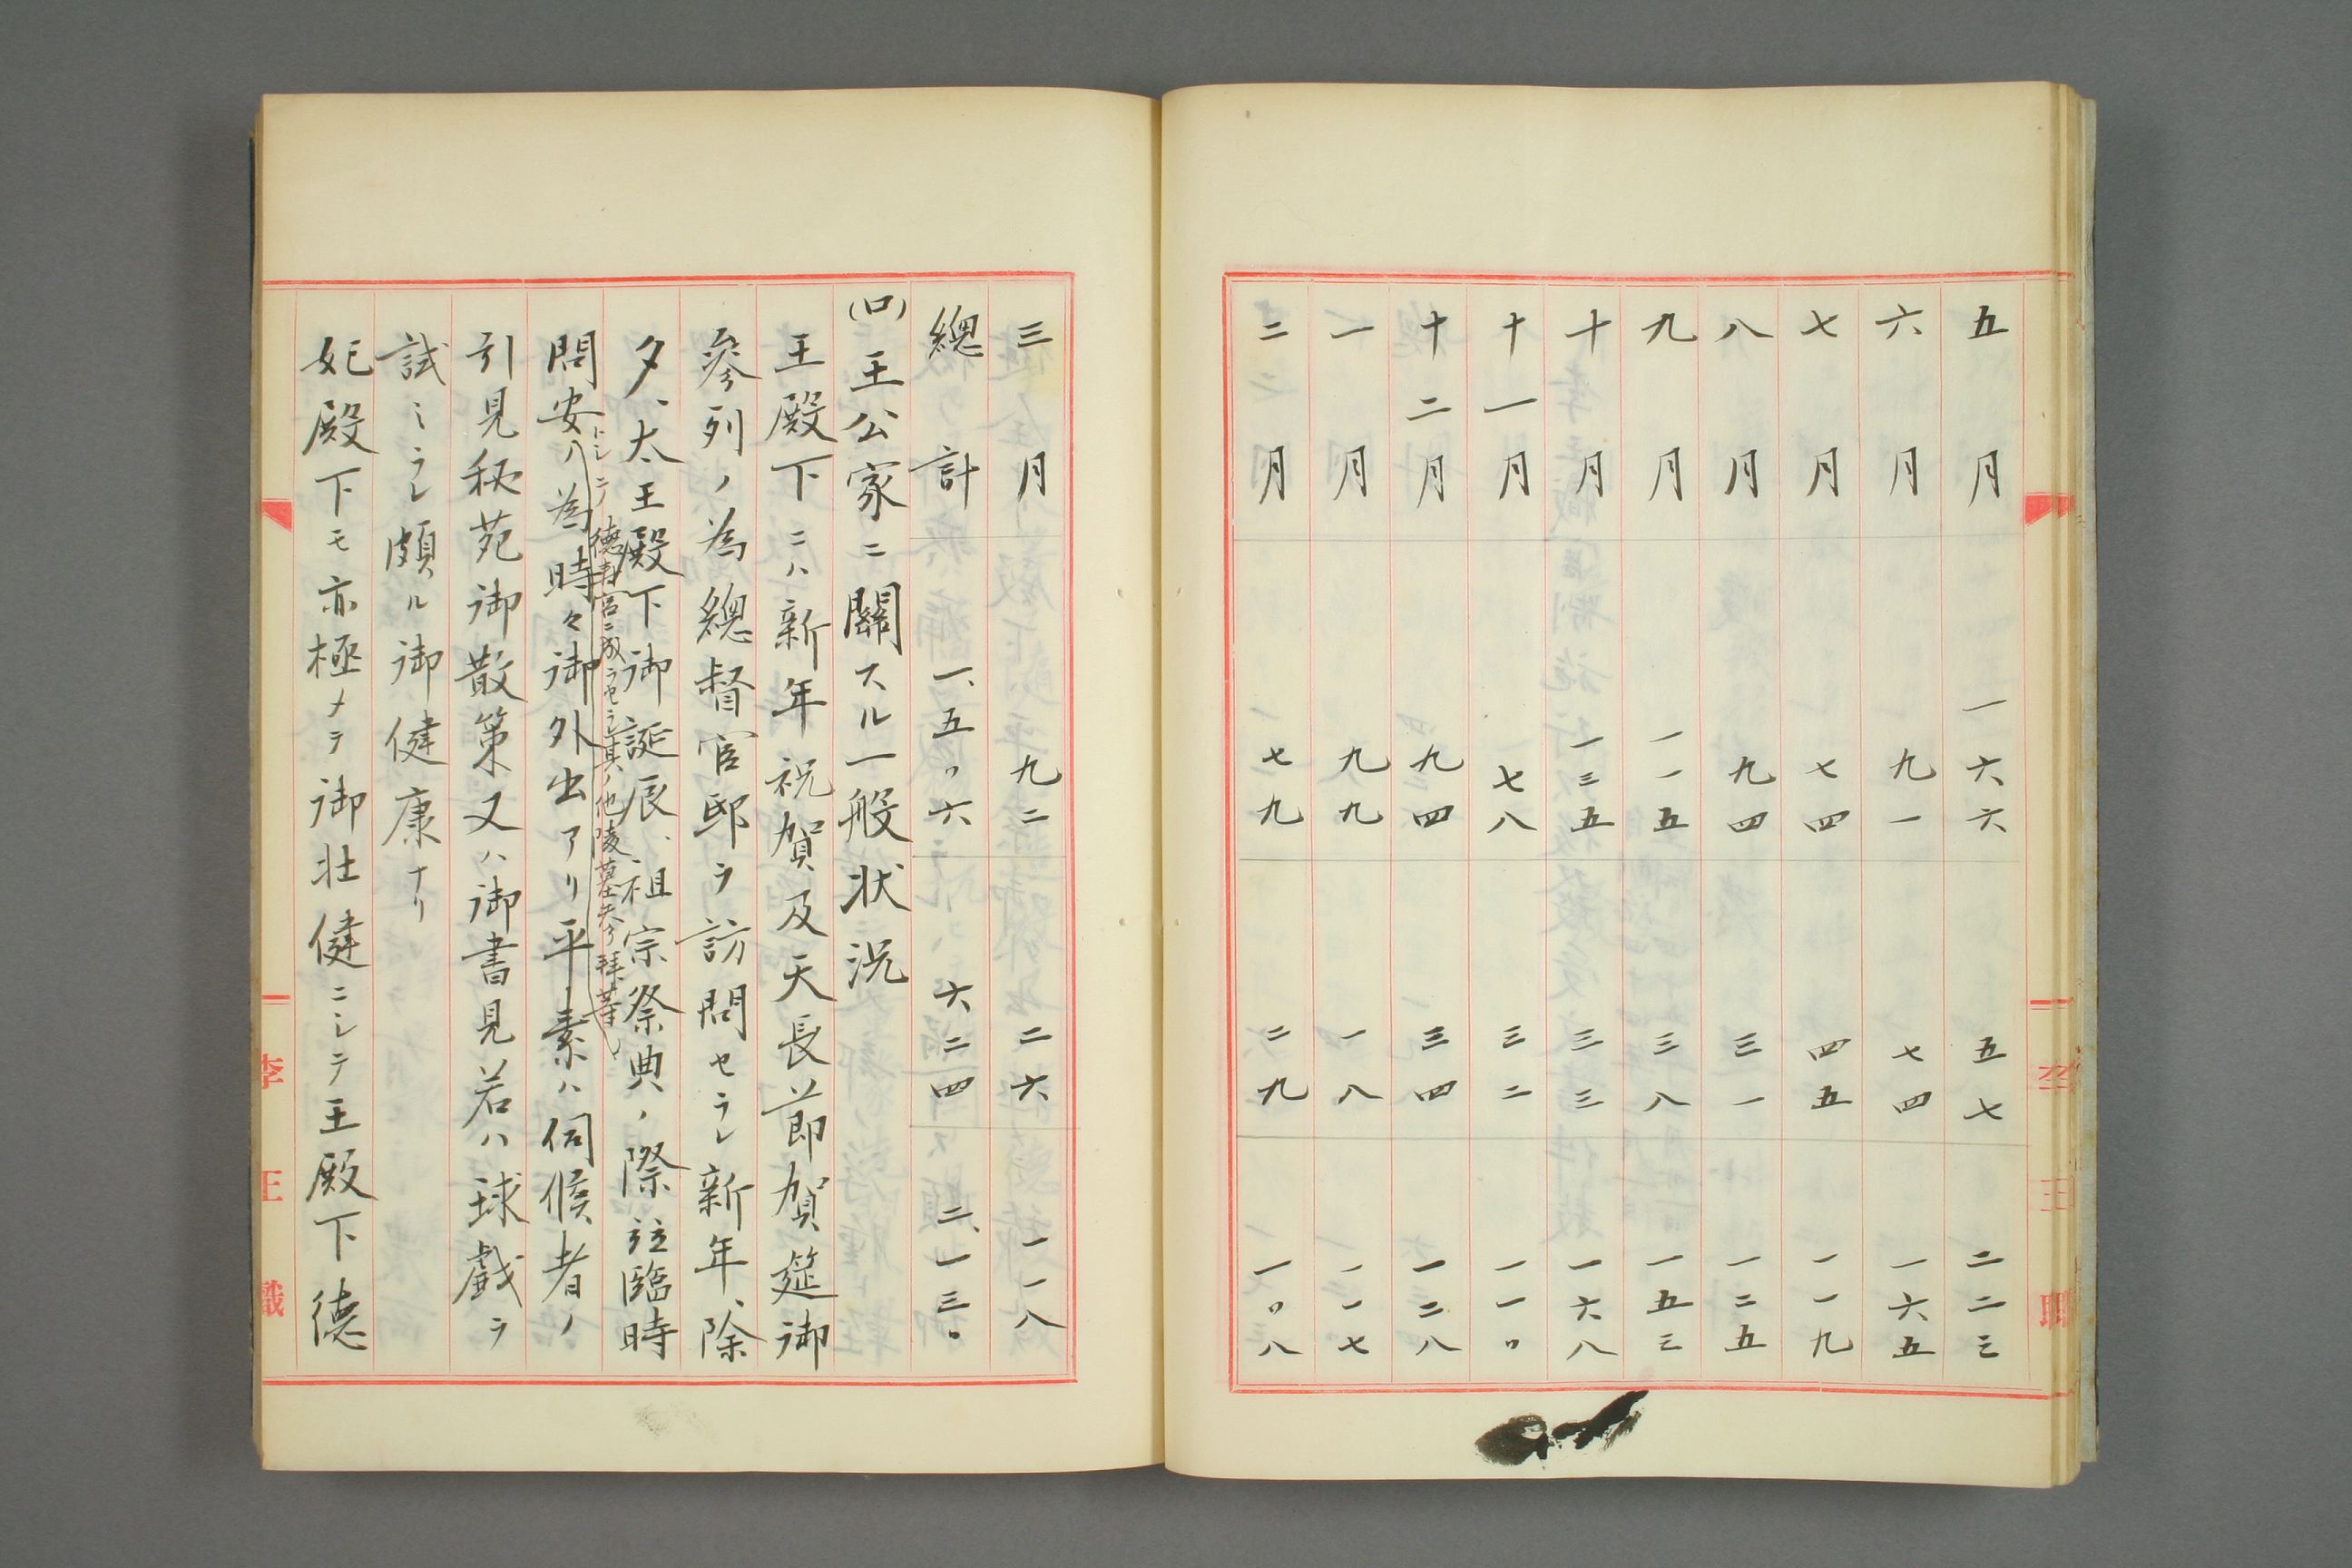 五月 一六六 五七 二二三
六月 九一 七四 一六五
七月 七四 四五 一一九
八月 九四 三一 一二五
九月 一一五 三八 一五三
十月 一三五 三三 一六八
十一月 七八 三二 一一〇
十二月 九四 三四 一二八
一月 九九 一八 一一七
二月 七九 二九 一〇八
三月 九二 二六 一一八
總計 一、五〇六 六二四 二、一三〇
(ロ) 王公家ニ關スル一般状況
王殿下ニハ新年祝賀及天長節賀筵御
參列ノ為總督官邸ヲ訪問セラレ新年、除
夕、太王殿下御誕辰、祖宗祭典ノ際並臨時
トシテ德壽宮ニ成ラセラレ其ノ他陵墓奉拜等
問安ノ為時々御外出アリ平素ハ伺候者ノ
引見秘苑御散策又ハ御書見若ハ球戯ヲ
試ミラレ頗ル御健康ナリ
妃殿下モ亦極メテ御壮健ニシテ王殿下德
李王職